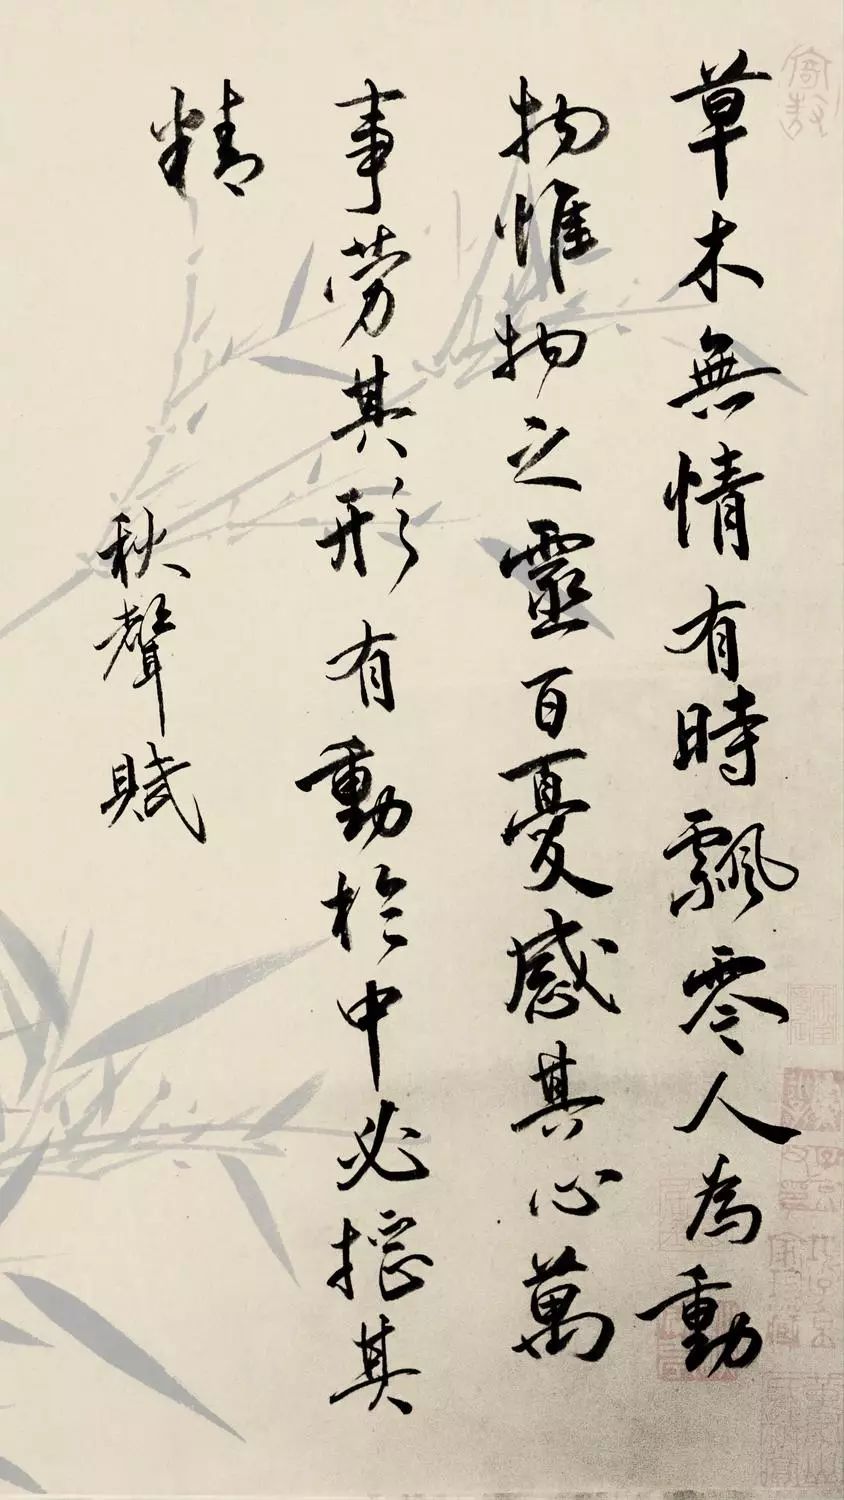 草木無情有時飄零人為動
物惟物之靈百憂感其心萬
事劳其形有動於中必摇其
精
秋聲賦